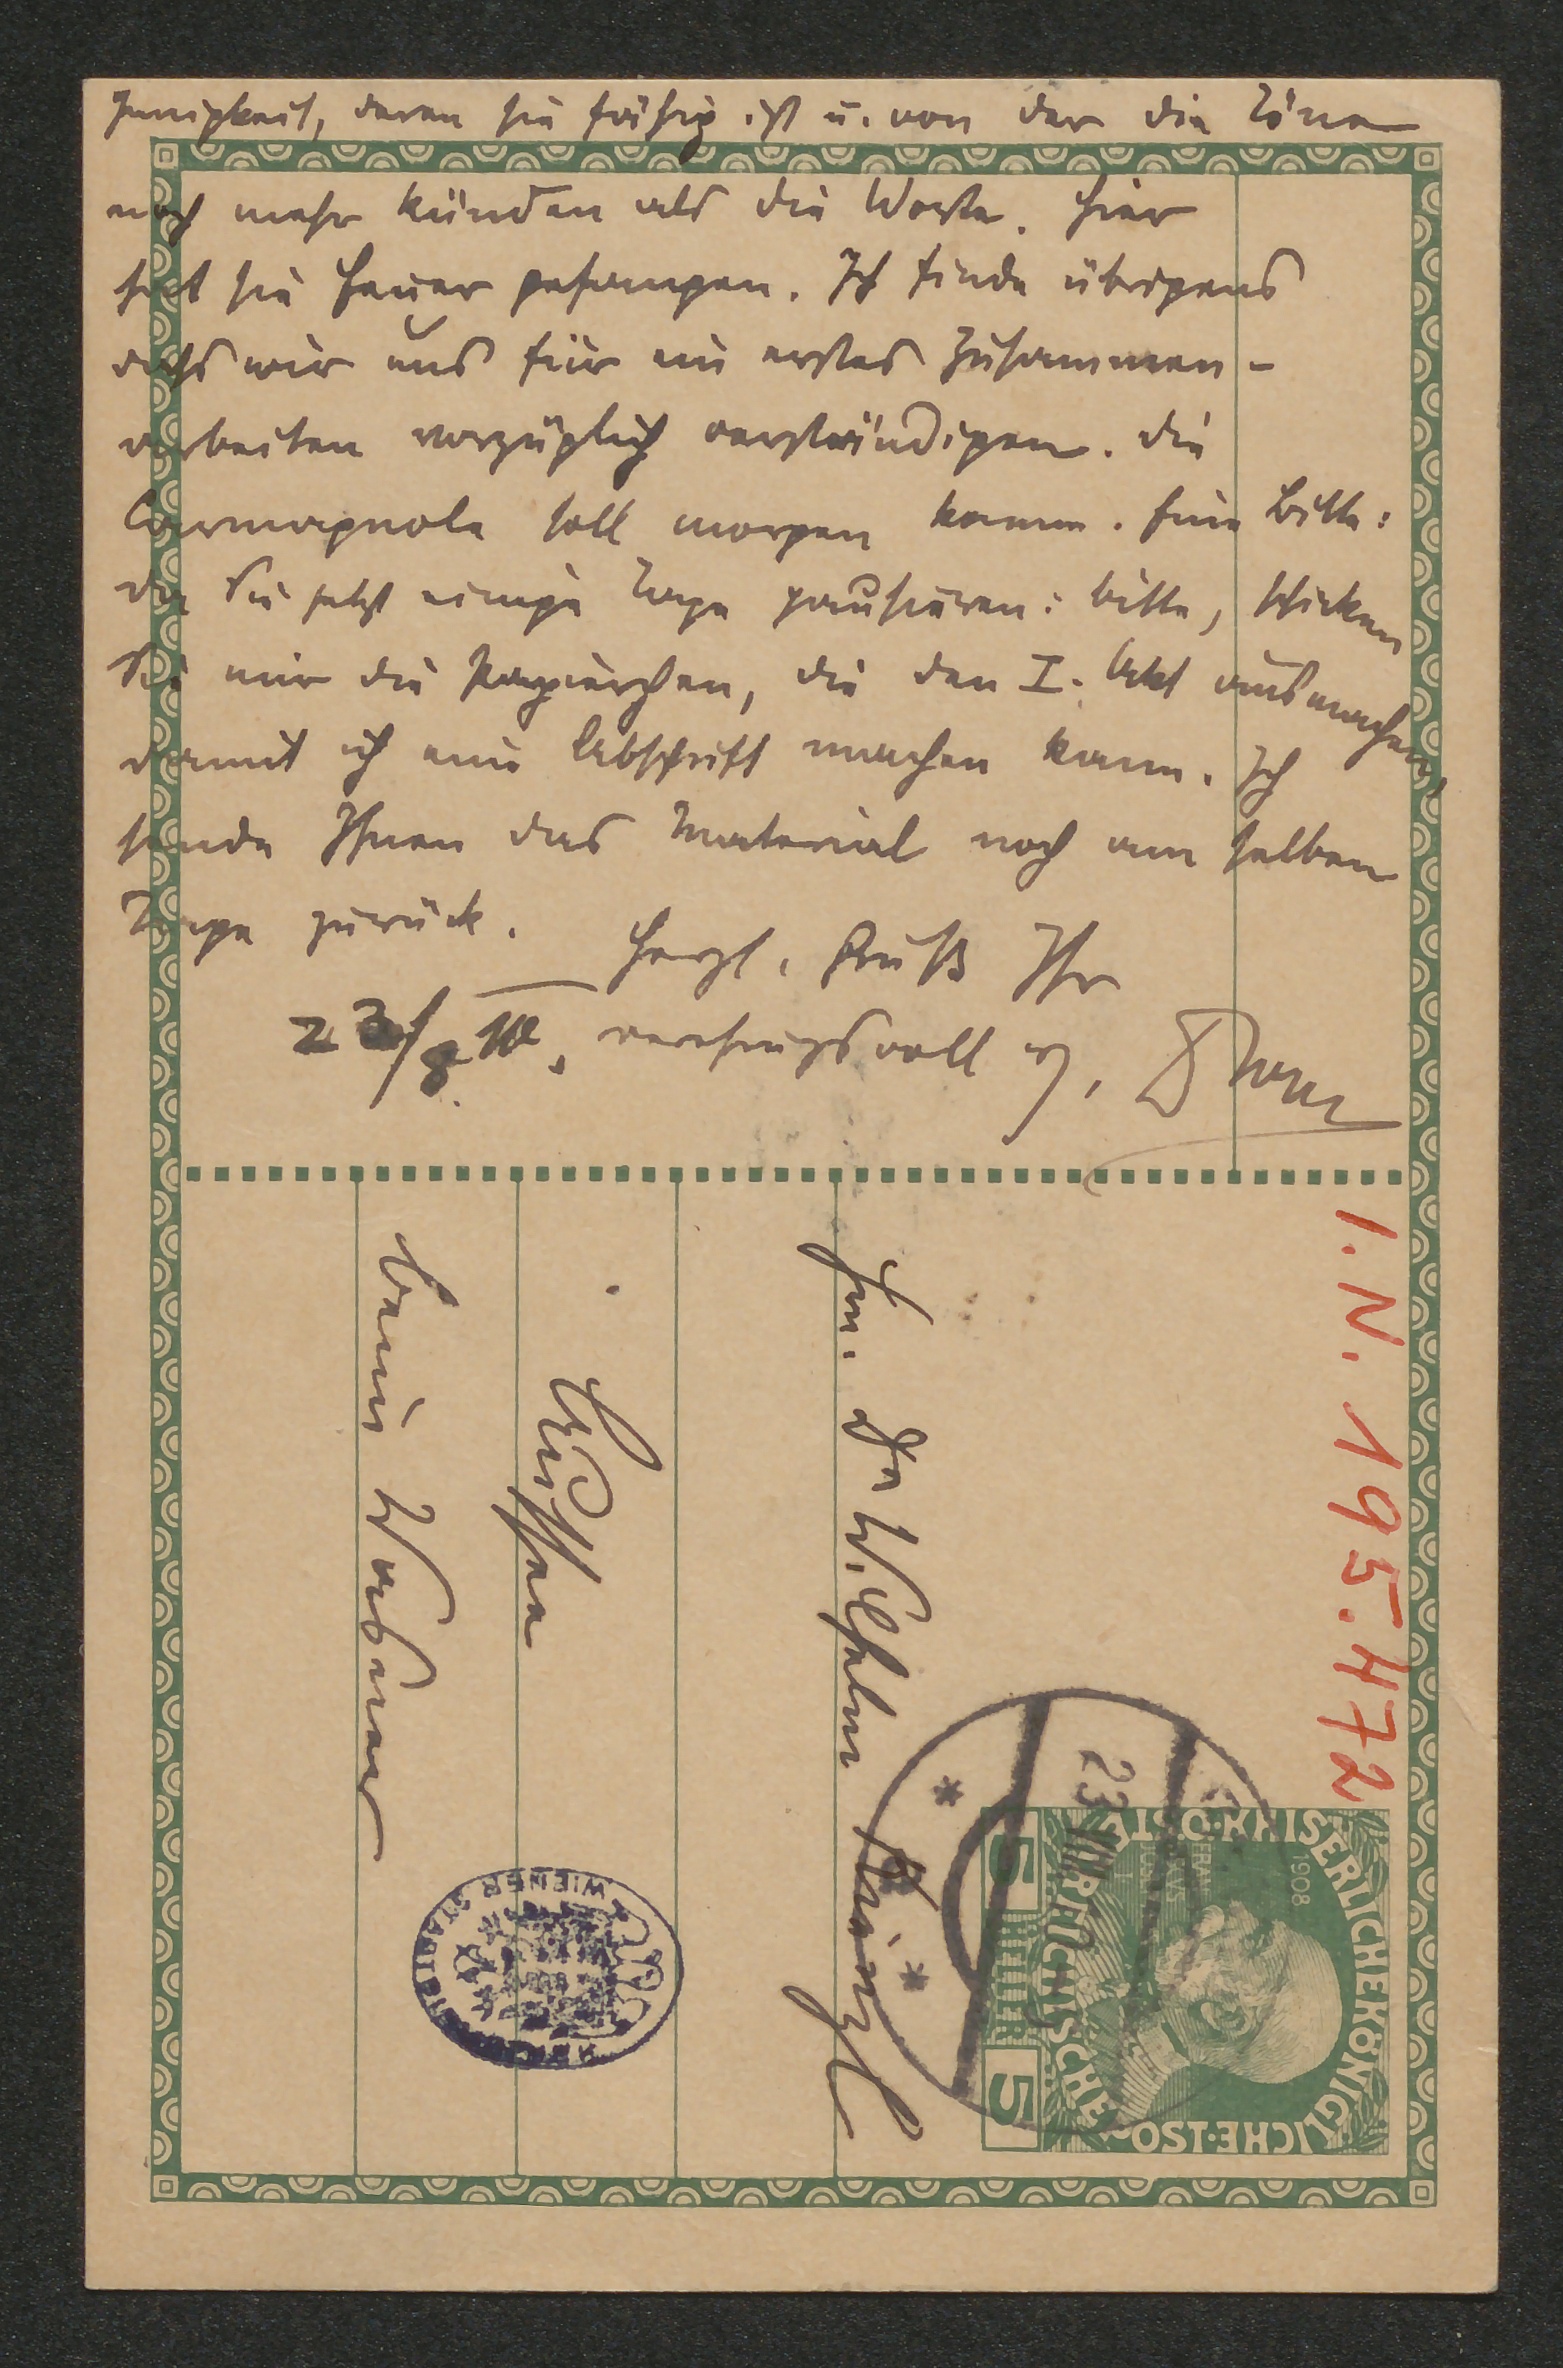 Innigkeit, deren sie fähig ist u. von der die Töne
noch mehr künden als die Worte. Hier
hat sie Feuer gefangen. Ich finde übrigens
dass wir uns für ein erstes Zusammen-
arbeiten vorzüglich verständigen. Die
Carmagnole soll morgen kommen. Eine Bitte:
da Sie jetzt einige Tage pausieren: bitte, schicken
Sie mir die Papierchen, die den I. Akt ausmachen,
damit ich eine Abschrift machen kann. Ich
sende Ihnen das Material noch am selben
Tage zurück.
Herzl. Gruß Ihr
23/8 10. verehrungsvoll erg.
I. N. 195.472
Hrn. Dr Wilhelm Kienzl
Aussee
beim Wasner
23 VIII
1908
KAISERLICHEKÖNIGLICHE·ÖST
5 HELLER 5
WIENER STADT